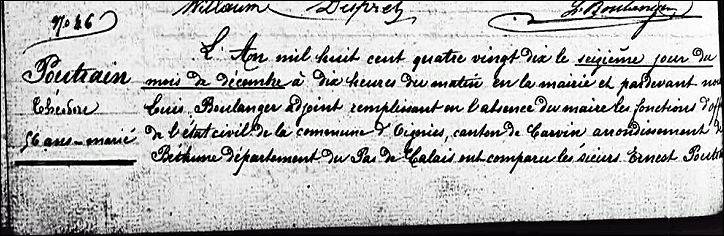 Willaume Duprez L. Boulanger
No 46
L'An mil huit cent quatre vingt dix le seizième jour du
Poutrain
mois de décembre à dix heures du matin en la mairie et pardevant nou
Théodore
Louis Boulanger adjoint remplissant en l'absence du maire les fonctions d'off
56 ans - marié
de l'état civil de la commune d'Oignies, canton de Carvin arrondissement d
Béthune département du Pas de Calais ont comparu les sieurs Ernest Poutr